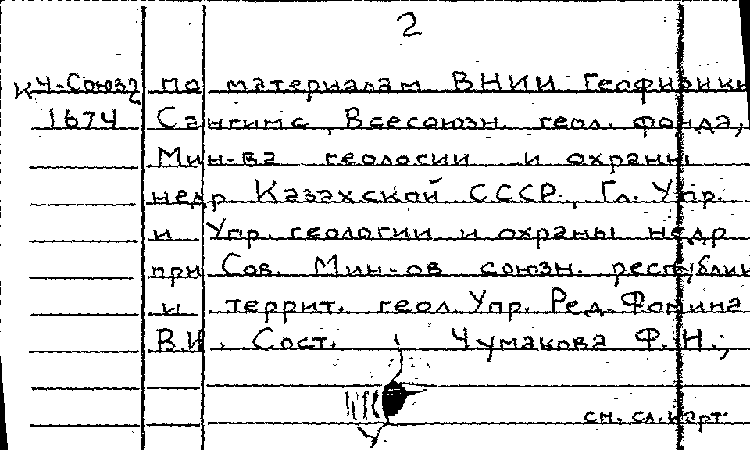 2
К Ч-Союз2 по материалам ВНИИ Геофизики
1674 Сангимс, Всесоюзн. геол. фонда,
Мин-ва геологии и охраны
недр Казахской СССР., Гл. Упр.
и Упр. геологии и охраны недр
при Сов. Мин-ов союзн. республик
и террит. геол. Упр. Ред. Фомина
В.И. Сост. Чумакова Ф.Н.,
см. сл. карт.